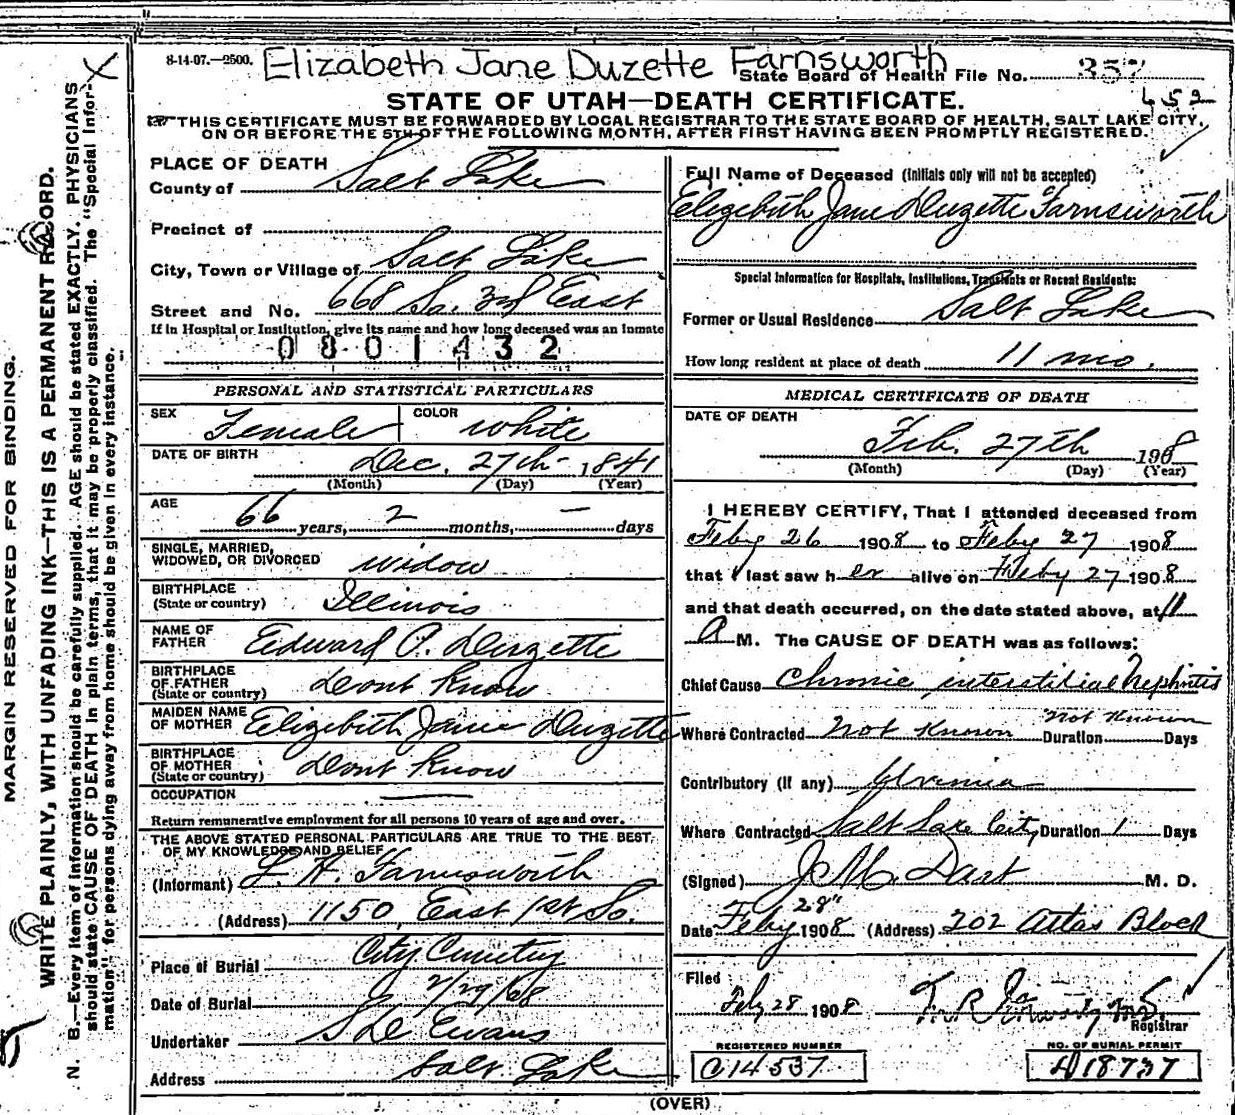 8-14-07.—2500. Elizabeth Jane Duzette Farnsworth
State Board of Health File No. 352
452
STATE OF UTAH—DEATH CERTIFICATE.
THIS CERTIFICATE MUST BE FORWARDED BY LOCAL REGISTRAR TO THE STATE BOARD OF HEALTH, SALT LAKE CITY,
ON OR BEFORE THE 5TH OF THE FOLLOWING MONTH, AFTER FIRST HAVING BEEN PROMPTLY REGISTERED.
MARGIN RESERVED FOR BINDING.
WRITE PLAINLY, WITH UNFADING INK—THIS IS A PERMANENT RECORD.
N. B.—Every item of information should be carefully supplied. AGE should be stated EXACTLY. PHYSICIANS
should state CAUSE OF DEATH in plain terms, that it may be properly classified. The "Special Infor-
mation" for persons dying away from home should be given in every instance.
PLACE OF DEATH
County of Salt Lake
Precinct of
City, Town or Village of Salt Lake
Street and No. 668 So. 3rd East
If in Hospital or Institution, give its name and how long deceased was an inmate
0801432
PERSONAL AND STATISTICAL PARTICULARS
SEX Female COLOR White
DATE OF BIRTH Dec. 27th 1841
(Month) (Day) (Year)
AGE 66 years, 2 months, — days
SINGLE, MARRIED,
WIDOWED, OR DIVORCED widow
BIRTHPLACE
(State or country) Illinois
NAME OF
FATHER Edward P. Duzette
BIRTHPLACE
OF FATHER
(State or country) Dont Know
MAIDEN NAME
OF MOTHER Elizebeth Jane Duzette
BIRTHPLACE
OF MOTHER
(State or country) Dont Know
OCCUPATION —
Return remunerative employment for all persons 10 years of age and over.
THE ABOVE STATED PERSONAL PARTICULARS ARE TRUE TO THE BEST
OF MY KNOWLEDGE AND BELIEF
(Informant) F. A. Farnsworth
(Address) 1150 East 1st So.
Place of Burial City Cemetry
Date of Burial 2/29/08
Undertaker S D Evans
Address Salt Lake
Full Name of Deceased (Initials only will not be accepted)
Elizebeth Jane Duzette Farnsworth
Special Information for Hospitals, Institutions, Transients or Recent Residents:
Former or Usual Residence Salt Lake
How long resident at place of death 11 mo.
MEDICAL CERTIFICATE OF DEATH
DATE OF DEATH
Feb. 27th 1908
(Month) (Day) (Year)
I HEREBY CERTIFY, That I attended deceased from
Feby 26 1908 to Feby 27 1908
that I last saw her alive on Feby 27 1908
and that death occurred, on the date stated above, at 11
A M. The CAUSE OF DEATH was as follows:
Chief Cause Chronic interstitial Nephritis
Where Contracted Not Known Duration Not Known Days
Contributory (if any) Uremia
Where Contracted Salt Lake City Duration 1 Days
(Signed) J M. Dart M. D.
Date Feby 28" 1908 (Address) 202 Atlas Block
Filed
Feby 28 1908
Registrar
REGISTERED NUMBER
C14537
NO. OF BURIAL PERMIT
D18737
(OVER)